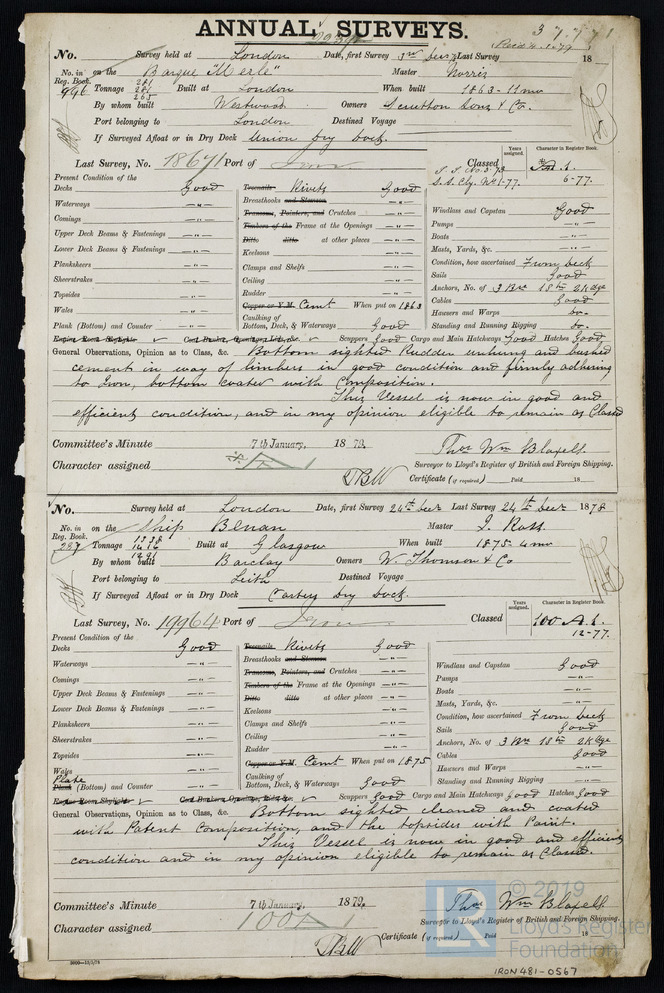 ANNUAL SURVEYS.
37,771
No. Survey held at London Date, first Survey 3rd Last Survey 18
No. in Reg. Book. on the Barque "Merle" Master Norris
996 Tonnage 281 281 265 Built at London When built 1863 - 11mo
By whom built Westwood Owners Scrutton Sons & Co.
Port belonging to London Destined Voyage
If Surveyed Afloat or in Dry Dock Union Dry Dock.
Last Survey, No. 18671 Port of Iron
Classed
Years assigned. Character in Register Book.
A.1.
S.S. No. 3-73
6-77.
Present Condition of the
Decks Good
Waterways — „ —
Comings — „ —
Upper Deck Beams & Fastenings — „ —
Lower Deck Beams & Fastenings — „ —
Planksheers — „ —
Sheerstrakes — „ —
Topsides — „ —
Wales — „ —
Plank (Bottom) and Counter — „ —
Treenails Rivets Good
Breasthooks and Stemson — „ —
Transoms, Pointers, and Crutches — „ —
Timbers of the Frame at the Openings — „ —
Ditto ditto at other places — „ —
Keelsons — „ —
Clamps and Shelfs — „ —
Ceiling — „ —
Rudder — „ —
Copper or Y.M. Cemt When put on 1863
Caulking of Bottom, Deck, & Waterways Good
Windlass and Capstan Good
Pumps — „ —
Boats — „ —
Masts, Yards, &c. — „ —
Condition, how ascertained From deck
Sails Good
Anchors, No. of 3 Br 1 Stm 2 Kdge
Cables Good
Hawsers and Warps do.
Standing and Running Rigging do.
Engine Room Skylights ✓ Coal Bunker Openings, Lids, &c. ✓ Scuppers Good Cargo and Main Hatchways Good Hatches Good
General Observations, Opinion as to Class, &c. Bottom sighted Rudder unhung and bushed
cement in way of limbers in good condition and firmly adhering
to Iron, bottom coated with Composition.
This Vessel is now in good and
efficient condition, and in my opinion eligible to remain as Classed
Committee's Minute 7th January, 1879.
Character assigned
Thos Wm Blaxell
Surveyor to Lloyd's Register of British and Foreign Shipping.
Certificate (if required) Paid 18
No. Survey held at London Date, first Survey 24th Decr Last Survey 24th Decr 1878
No. in Reg. Book. on the Ship Benan Master J. Ross
287 Tonnage Built at Glasgow When built 1875 - 4mo
By whom built Barclay Owners W. Thomson & Co
Port belonging to Leith Destined Voyage
If Surveyed Afloat or in Dry Dock Carters Dry Dock.
Last Survey, No. 19964 Port of Iron
Classed
Years assigned. Character in Register Book.
100 A.1.
12-77.
Present Condition of the
Decks Good
Waterways — „ —
Comings — „ —
Upper Deck Beams & Fastenings — „ —
Lower Deck Beams & Fastenings — „ —
Planksheers — „ —
Sheerstrakes — „ —
Topsides — „ —
Wales — „ —
Plate
Plank (Bottom) and Counter — „ —
Treenails Rivets Good
Breasthooks and Stemson — „ —
Transoms, Pointers, and Crutches — „ —
Timbers of the Frame at the Openings — „ —
Ditto ditto at other places — „ —
Keelsons — „ —
Clamps and Shelfs — „ —
Ceiling — „ —
Rudder — „ —
Copper or Y.M. Cemt When put on 1875
Caulking of Bottom, Deck, & Waterways Good
Windlass and Capstan Good
Pumps — „ —
Boats — „ —
Masts, Yards, &c. — „ —
Condition, how ascertained From deck
Sails Good
Anchors, No. of 3 Br 1 Stm 2 Kdge
Cables Good
Hawsers and Warps — „ —
Standing and Running Rigging — „ —
Engine Room Skylights ✓ Coal Bunkers Openings, Lids, &c. ✓ Scuppers Good Cargo and Main Hatchways Good Hatches Good
General Observations, Opinion as to Class, &c. Bottom sighted cleaned and coated
with Patent Composition, and the topsides with Paint.
This Vessel is now in good and efficient
condition and in my opinion eligible to remain as Classed.
Committee's Minute 7th January. 1879.
Character assigned 100 A 1
Thos Wm Blaxell
Surveyor to Lloyd's Register of British and Foreign Shipping.
Certificate (if required) Paid 18
© 2019
Lloyd's Register
Foundation
IRON 481-0567